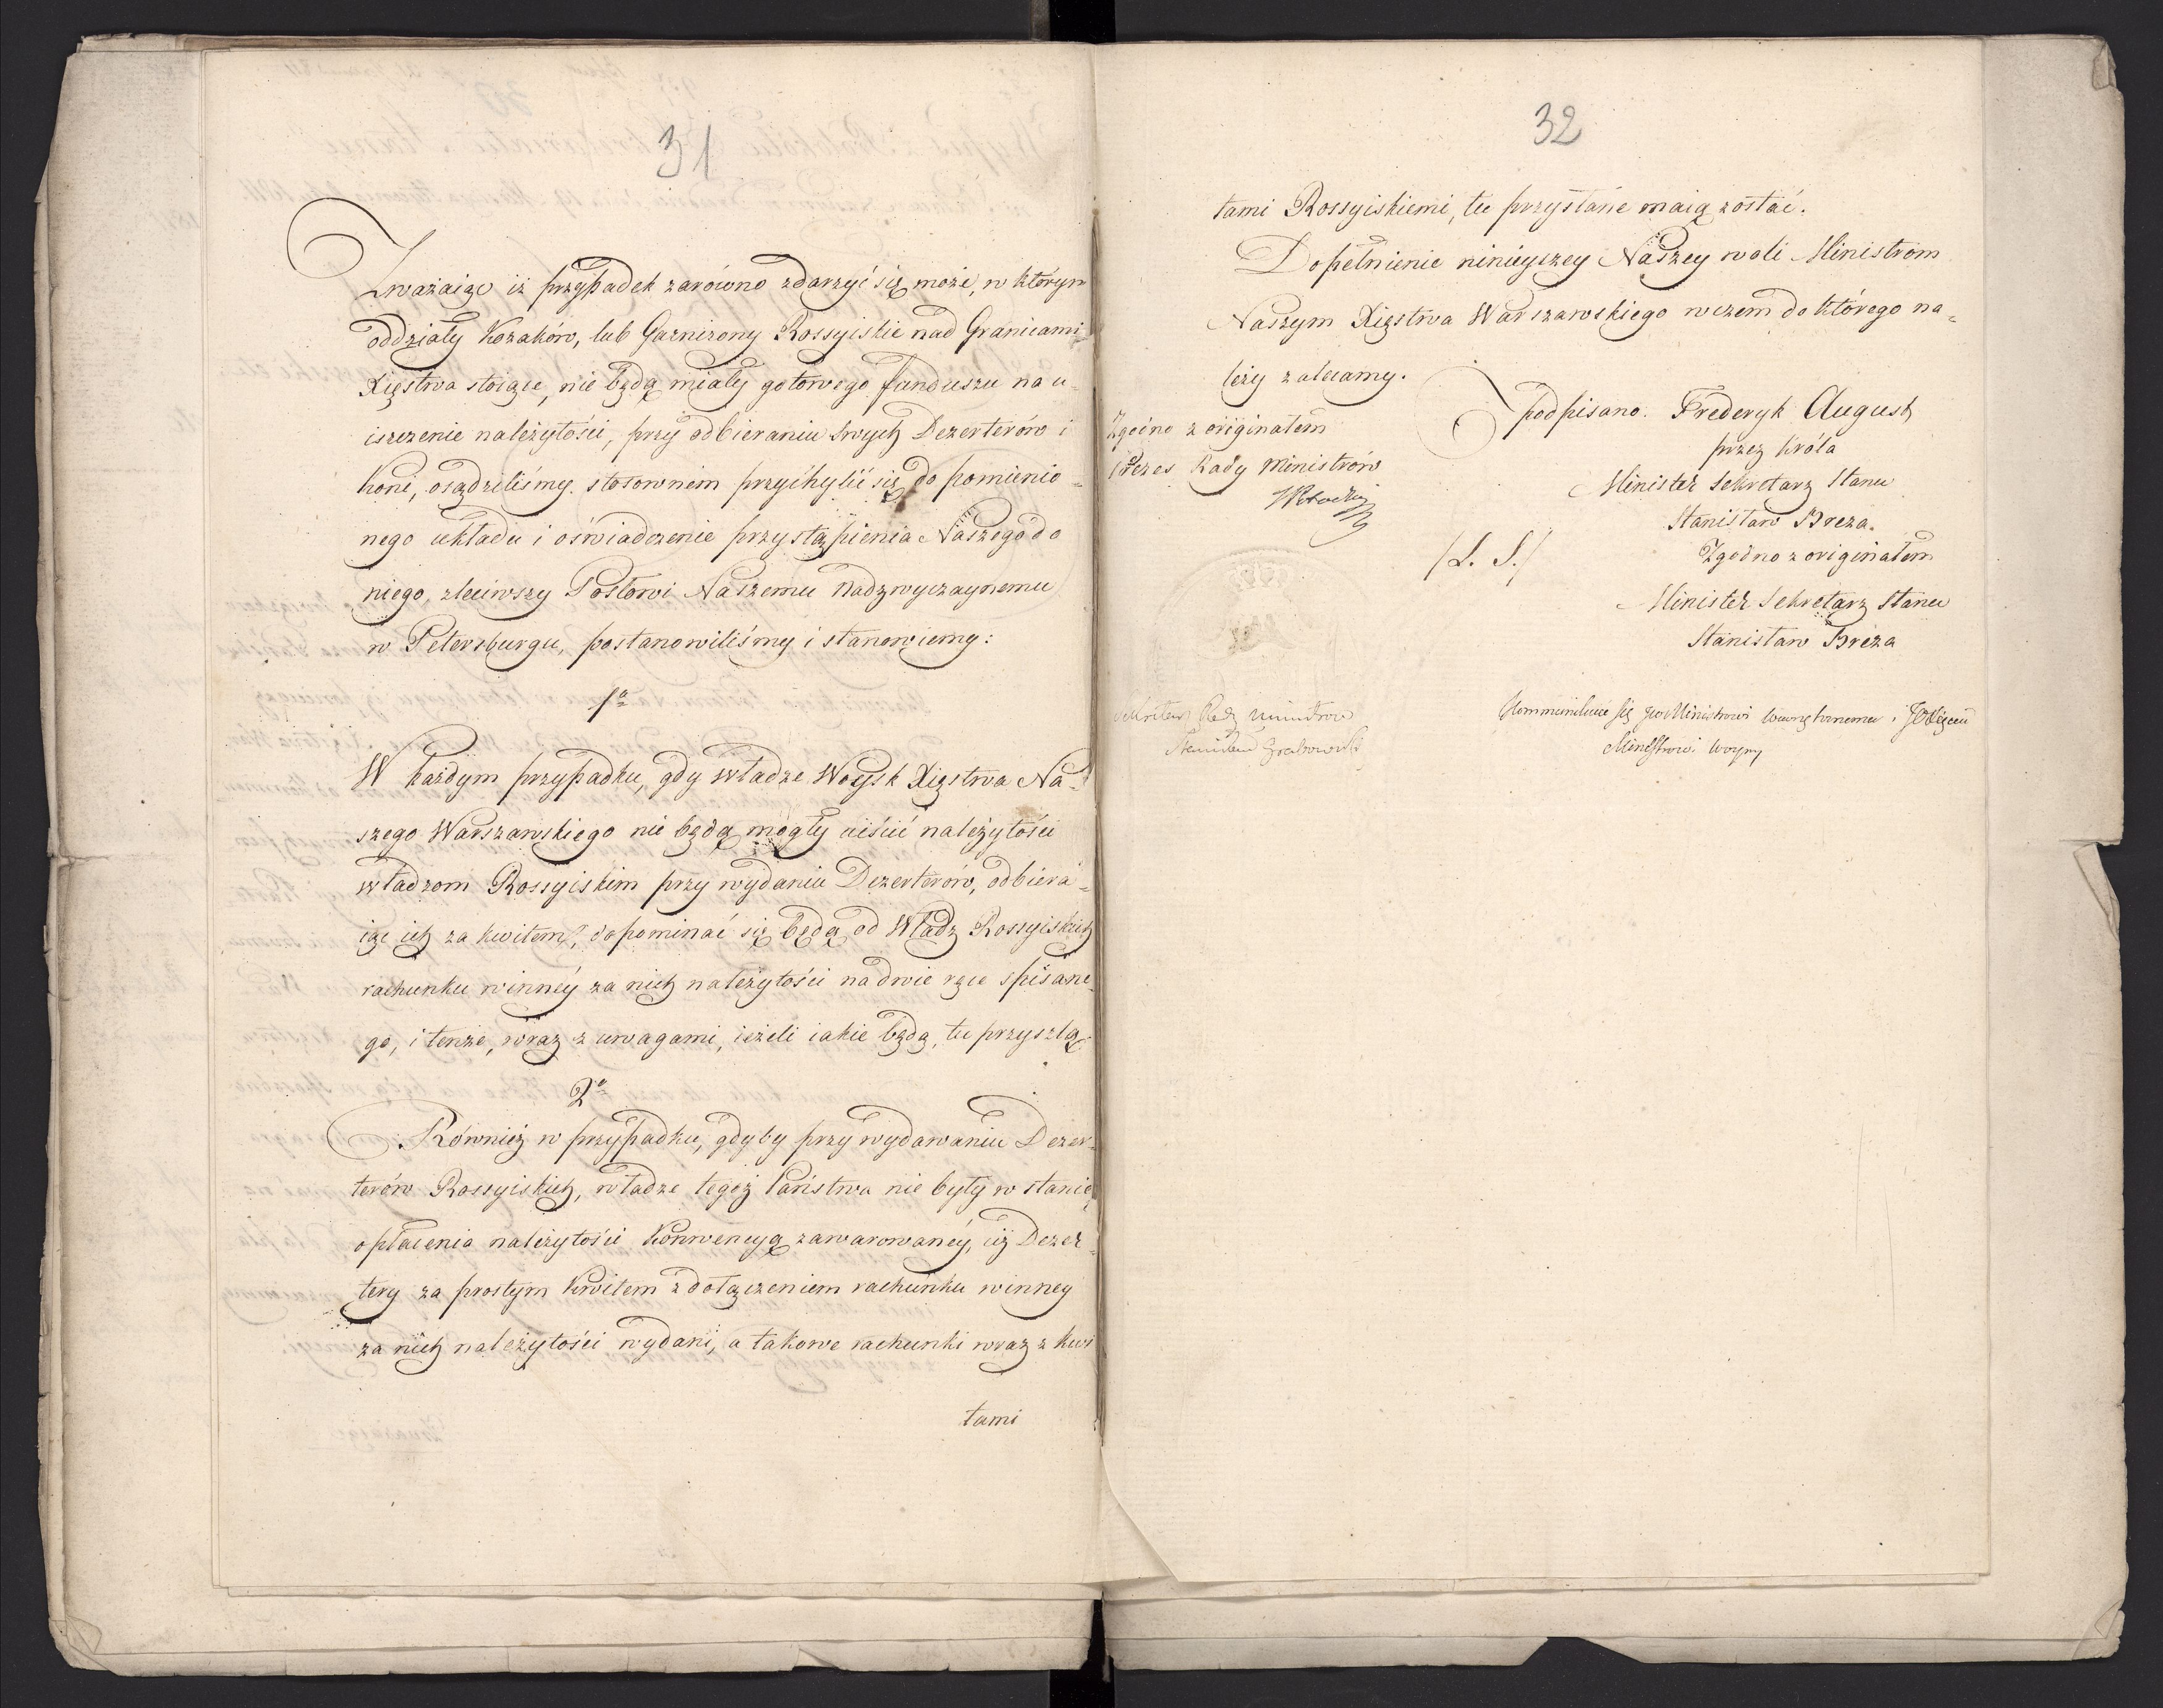 31
Zważaiąc iż przypadek zarówno zdarzyć się może, w którym
oddziały Kozaków, lub Garnizony Rossyiskie nad Granicami
Xięstwa stoiące, nie będą miały gotowego funduszu na u=
iszczenie należytości, przy odbieraniu swych Dezerterów i
koni, osądziliśmy stosownem przychylić się do pomienio=
nego układu i oświadczenie przystąpienia Naszego do
niego, zleciwszy Posłowi Naszemu nadzwyczaynemu
w Petersburgu, postanowiliśmy i stanowiemy:
1o
W każdym przypadku, gdy władze Woysk Xięstwa Na=
szego Warszawskiego nie będą mogły uiścić należytości
władzom Rossyiskim przy wydaniu Dezerterów, odbiera=
iąc ich za kwitem, dopominać się będą od Władz Rossyiskich
rachunku winnéy za nich należytości na dwie ręce spisane=
go, i tenże, wraz z uwagami, ieżeli iakie będą, tu przyszlą.
2o
Również w przypadku, gdyby przy wydawaniu Dezer=
terów Rossyiskich, władze tegoż Państwa nie były w stanie
opłacenia należytości Konwencyą zawarowanéy, ciż Dezer=
tery za prostym kwitem z dołączeniem rachunku winney
za nich należytości wydani, a takowe rachunki wraz z kwi
tami
32
tami Rossyiskiemi, tu przysłane maią zostać.
Dopełnienie ninieyszey Naszey woli Ministrom
Naszym Xięstwa Warszawskiego w czem do którego na=
leży zalecamy.
podpisano. Frederyk August
przez Króla
Minister Sekretarz Stanu
Stanisław Breza.
/L. S./
Zgodno z originałem
Minister Sekretarz Stanu
Stanisław Breza
Zgodno z originałem
Prezes Rady Ministrów
Sekretarz Rady Ministrów
Stanisław Grabowski
Kommunikuie się JW Ministrowi i JO Xięciu
Ministrowi Woyny